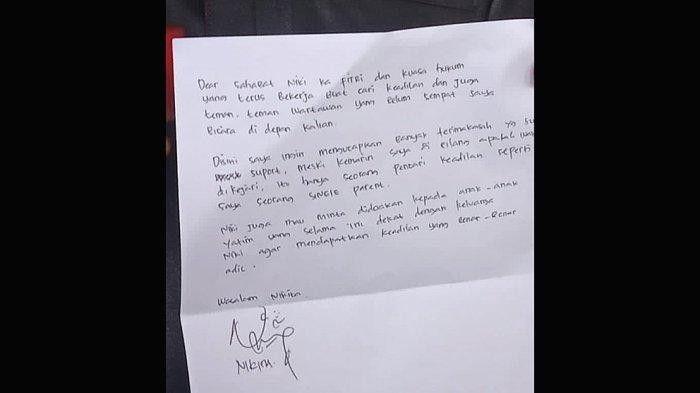 Dear Sahabat Niki ka FITRI dan kuasa hukum
yang terus Bekerja Buat cari keadilan dan juga
teman, teman wartawan yang Belum sempat saya
Bicara di depan kalian.
Disini saya ingin mengucapkan Banyak terimakasih yg su
suport, meski kemarin saya di Bilang apalah
di kejari, itu hanya seorang pencari keadilan seperti
saya seorang SINGLE PARENT.
Niki juga mau minta didoakan kepada anak-anak
yatim yang selama ini dekat dengan keluarga
Niki agar mendapatkan keadilan yang Benar-Benar
adil.
Wasalam Nikita
NIKITA